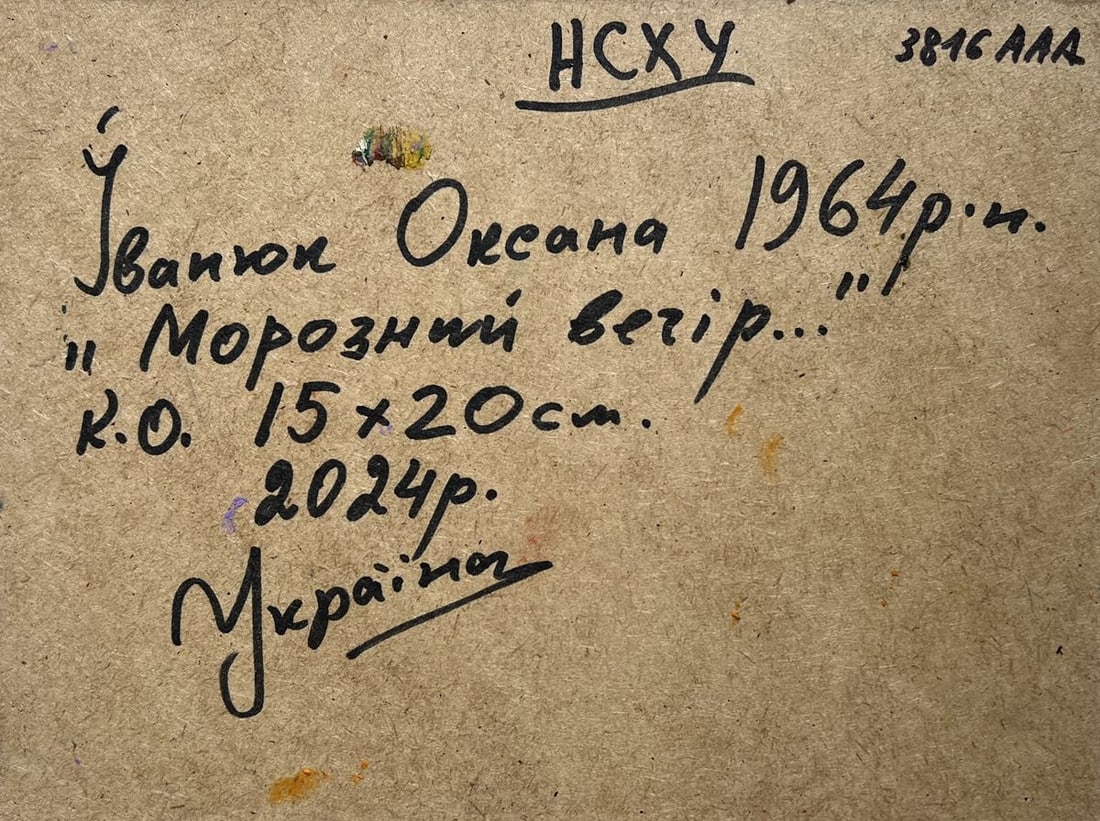 НСХУ
3816 ААА
Іванюк Оксана 1964р.н.
„Морозний вечір..."
к.о. 15х20см.
2024р.
Україна